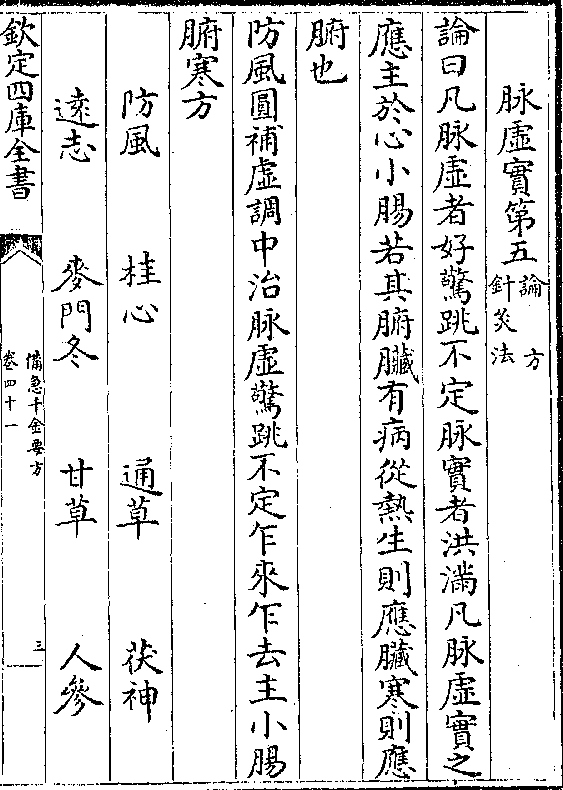 脉虛實第五論 方
針灸法
論曰凡脉虛者好驚跳不定脉實者洪滿凡脉虛實之
應主於心小腸若其腑臟有病從熱生則應臟寒則應
腑也
防風圓補虛調中治脉虛驚跳不定乍來乍去主小腸
腑寒方
防風 桂心 通草 茯神
遠志 麥門冬 甘草 人參
欽定四庫全書
備急千金要方
卷四十一
三